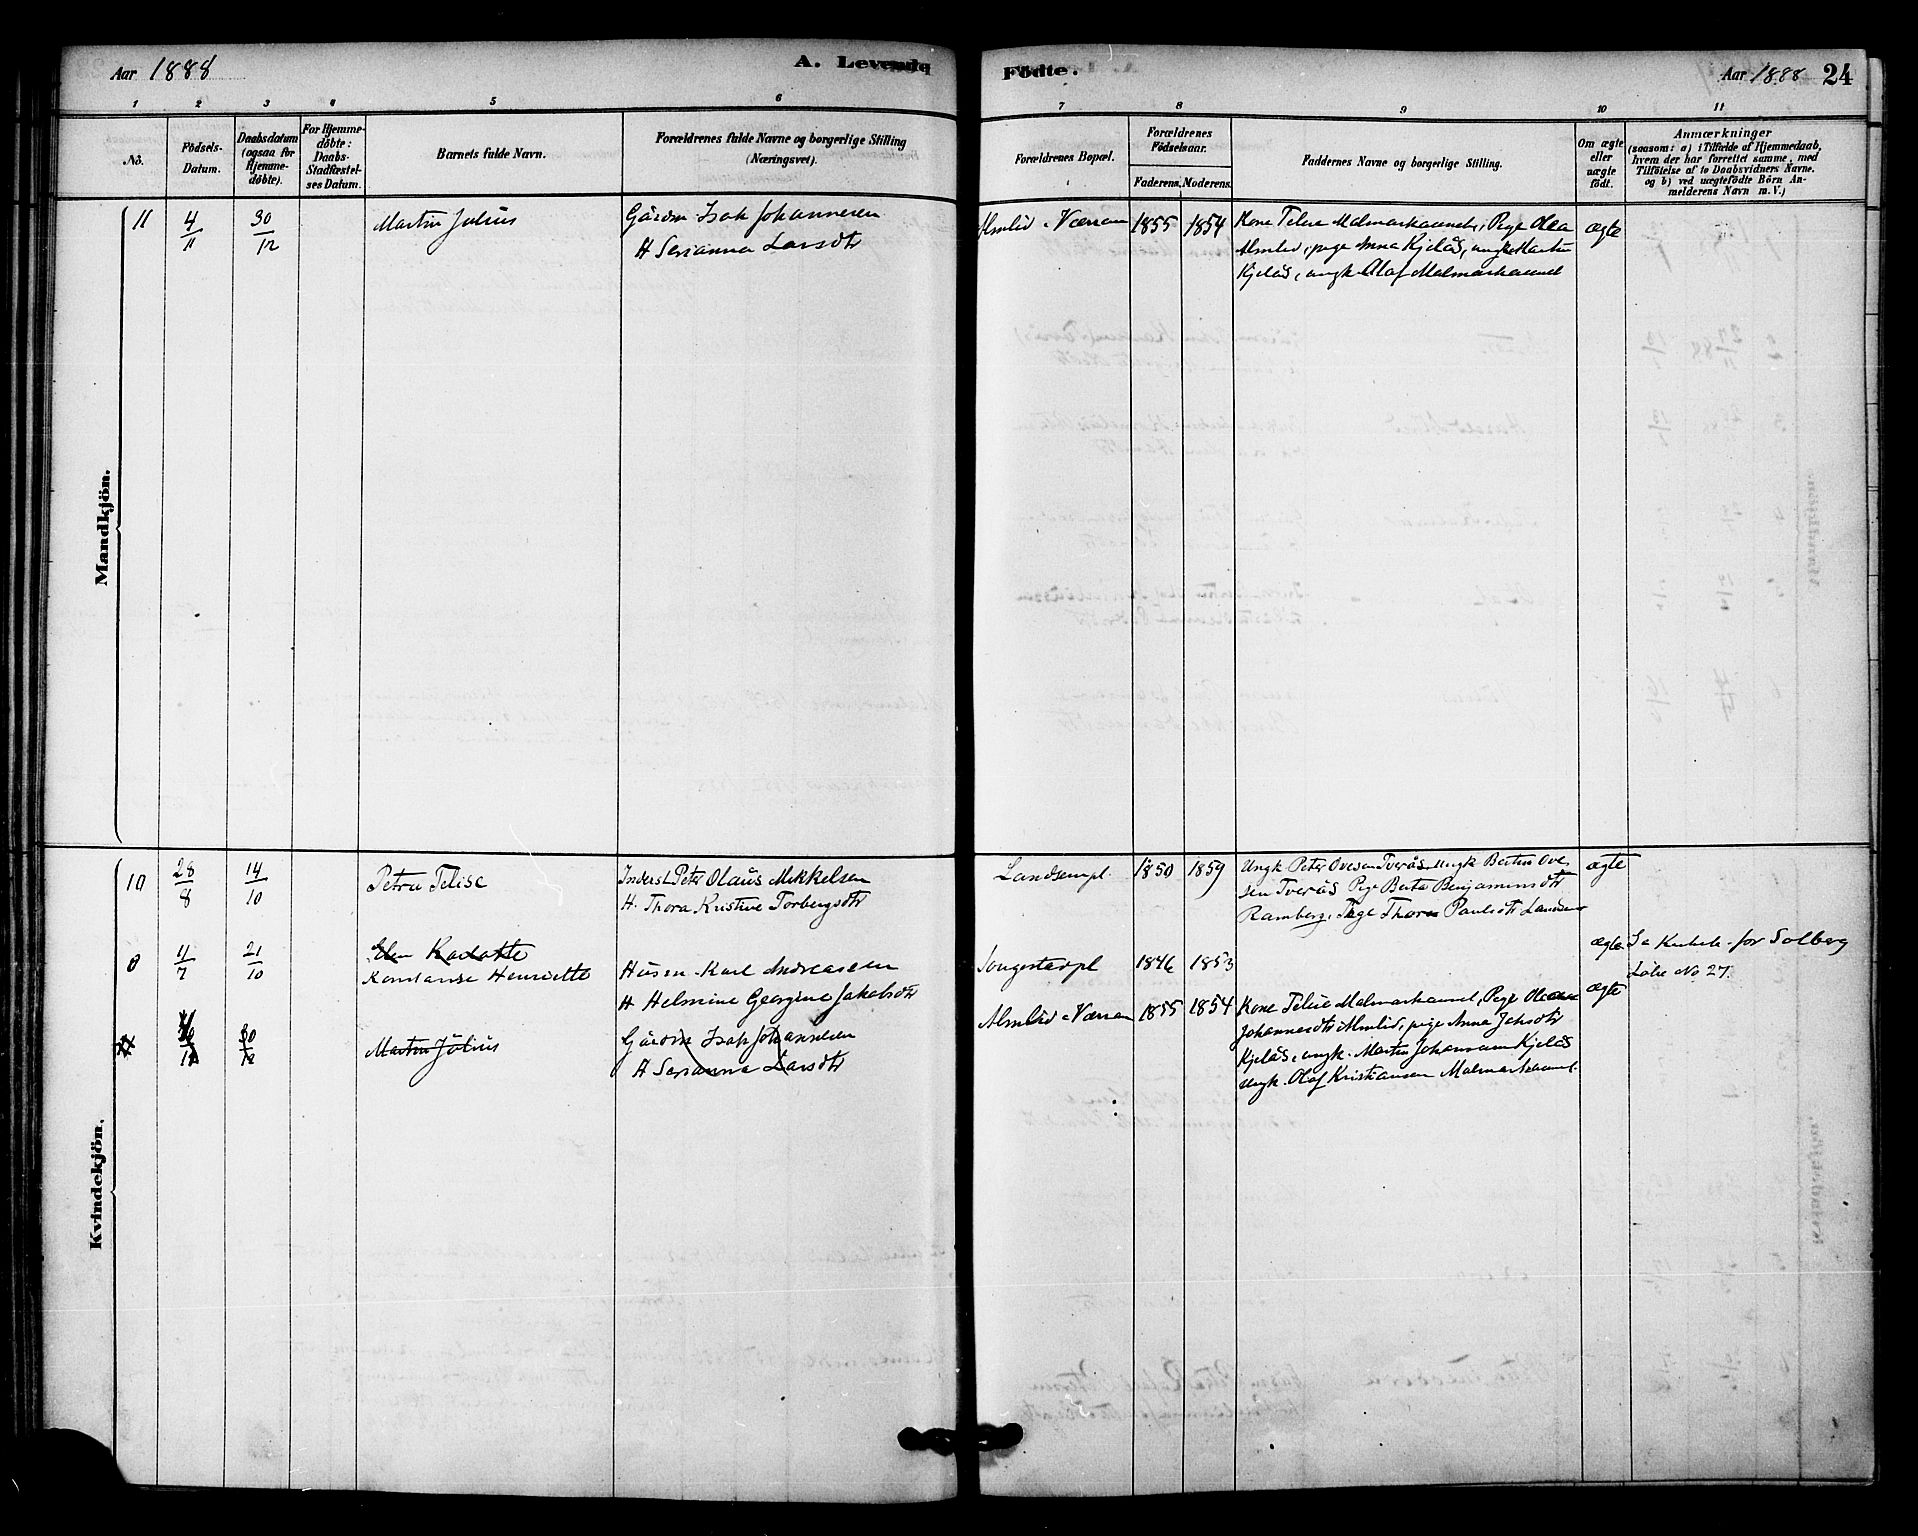 Aar 1888
A. Levende
Fødte.
Aar 1888 24
1 2 3 4 5 6 7 8 9 10 11
No.
Födsels-
Datum.
Daabsdatum
(ogsaa for
Hjemme-
døbte).
For Hjemme-
døbte:
Daabs-
Stadfæstel-
ses Datum.
Barnets fulde Navn.
Forældrenes fulde Navne og borgerlige Stilling
(Næringsvei).
Forældrenes Bopæl.
Forældrenes
Fødselsaar.
Faderens. Moderens.
Faddernes Navne og borgerlige Stilling.
Om ægte
eller
uægte
født.
Anmærkninger
(saasom: a) i Tilfælde af Hjemmedaab,
hvem der har forrettet samme, med
Tilføielse af to Daabsvidners Navne.
og b) ved uægtefødte Børn An-
melderens Navn m. V.)
Mandkjön.
11 4/11 30/12 Martin Julius
Gårdm Isak Johannesen
H Serianna Larsdtr
Almlid. Værran 1855 1854
Kone Telise Malmarkaunet, Pige Olea
Almlid, pige Anna Kjelås, ungk Martin
Kjelås, ungk. Olaf Malmarkaunet
ægte
Kvindekjön.
10 28/8 14/10 Petra Telise
Inderst Peter Olaus Mikkelsen
H. Thora Kristine Torbergsdtr
Landsempl. 1850 1859
Ungk Peter Ovesen Tverås Ungk Bertin Ove-
sen Tverås Pige Berta Benjaminsdtr
Ramberg, Pige Thora Paulsdtr Landsem
ægte
8 11/7 21/10
Konstanse Henriette
Husm. Karl Andreassen
H Helmine Georgine Jakobsdtr
1846 1853
ægte
for Solberg
No 27.
30/12 Martin Julius
Gårdm Isak Johannesen
H Serianna Larsdtr
Almlid Værran 1855 1854
Kone Telise Malmarkaunet, Pige Oleane
Johannesdtr Almlid, pige Anna
Kjelås, ungk. Martin Johansen Kjelås
Ungk. Olaf Kristiansen Malmarkaunet.
ægte